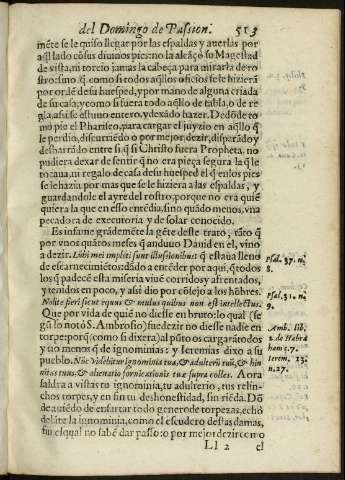 del Domingo de Passion. 513
mẽte se le quiso llegar por las espaldas y auerlas por
aq̃l lado cõ sus diuinos pies: no la alcãçò su Magestad
de vista, ni torcio jamas la cabeça para mirarla de ro
stro: sino q̃ como si todos aq̃llos oficios se le hizierã
por ordẽ de su huesped, y por mano de alguna criada
de su casa; y como si fuera todo aq̃llo de tabla, o de re
gla, assi se estuuo entero, y dexado hazer. De dõde to
mo pie el Phariseo, para cargar el juyzio en aq̃llo q̃
le perdio, discurriẽdo o por mejor dezir, disparãdo y
desbarrãdo entre si. q̃ si Christo fuera Propheta, no
pudiera dexar de sentir q̃ no era pieça segura la q̃ le
tocaua, ni regalo de casa de su huesped el q̃ en los pies
se le hazia por mas que se le hiziera a las espaldas, y
guardandole el ayre del rostro, porque no era quiẽ
quiera la que en esso entẽdia, sino quãdo menos, vna
pecadora de executoria y de solar conocido.
Es infame grãdemẽte la gẽte deste trato, tãto q̃
por vnos quãtos meses q̃ anduuo Dauid en el, vino
a dezir. Lũbi mei impleti sunt illusionibus q̃ estaua lleno
de escarnecimiẽtos: dãdo a entẽder por aqui, q̃ todos
los q̃ padecẽ esta miseria viuẽ corridos y afrentados,
y tenidos en poco, y assi dio por cõsejo a los hõbres.
Nolite fieri sicut equus & mulus quibus non est intellectus.
Que por vida de quiẽ no diesse en bruto: lo qual (se
gũ lo notò S. Ambrosio) fue dezir no diesse nadie en
torpe: porq̃ (como si dixera) al pũto os cargarã todos
y no menos q̃ de ignominias: y Ieremias dixo a su
pueblo. Nũc videbitur ignominia tua, & adulteriũ tuũ, & hin
nitus tuus, & alienatio fornicationis tuæ supra colles. Aora
saldra a vista tu ignominia, tu adulterio, tus relin-
chos torpes, y en fin tu deshonestidad, sin riẽda. Dõ
de auiẽdo de ensartar todo genero de torpezas, echò
delãte la ignominia, como el escudero destas damas,
sin el qual no sabẽ dar passo: o por mejor dezir como
Ll 2 el
Psal. 37. nu.
8.
Psal. 31. nu.
9.
Amb. lib.
2. de Habra
ham c. 7.
Ierem. 13.
n. 27.